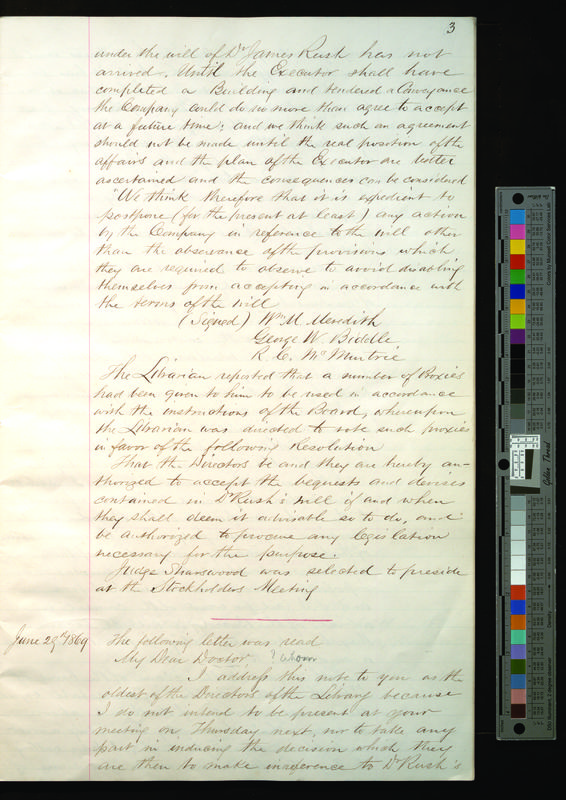 3
under the will of Dr James Rush has not
arrived. Until the Executor shall have
completed a Building and tendered a Conveyance
the Company could do no more than agree to accept
at a future time; and we think such an agreement
should not be made until the real position of the
affairs and the plan of the Executor are better
ascertained and the consequences can be considered
"We think therefore that it is expedient to
postpone (for the present at least) any action
by the Company in reference to the will other
than the observance of the provisions which
they are required to observe to avoid disabling
themselves from accepting in accordance with
the terms of the will
(Signed) Wm M. Meredith
George W. Biddle
R. C. McMurtrie
The Librarian reported that a number of Proxies
had been given to him to be used in accordance
with the instructions of the Board, whereupon
the Librarian was directed to vote such proxies
in favor of the following Resolution
That the Directors be and they are hereby au-
thorized to accept the bequests and devises
contained in Dr Rush's will if and when
they shall deem it advisable so to do, and
be authorized to procure any legislation
necessary for the purpose.
Judge Sharswood was selected to preside
at the Stockholders Meeting
June 29th 1869 The following letter was read
My Dear Doctor, ? whom
I address this note to you as the
oldest of the Directors of the Library because
I do not intend to be present at your
meeting on Thursday next, nor to take any
part in inducing the decision which they
are then to make in reference to Dr Rush's